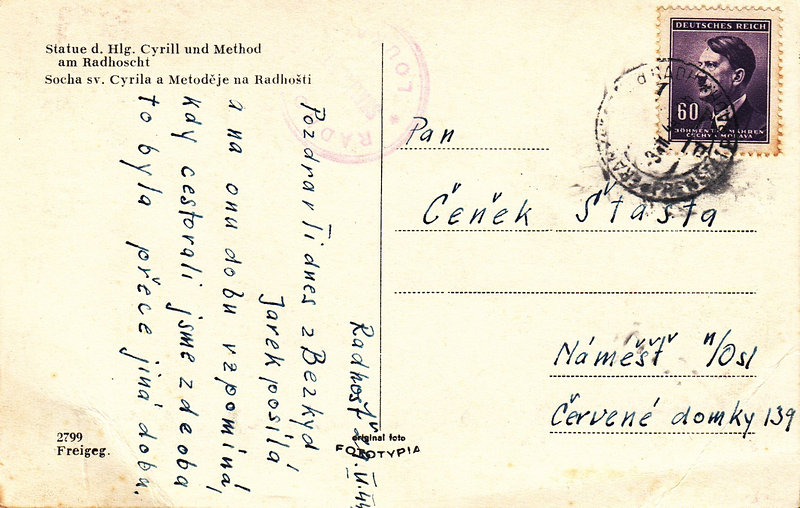 Statue d. Hlg. Cyrill und Method
am Radhoscht
Socha sv. Cyrila a Metoděje na Radhošti
Radhošť
Pozdrav Ti dnes z Bezkyd
Jarek posílá
a na onu dobu vzpomíná,
kdy cestovali jsme zde oba
to byla přece jiná doba.
2799
Freigeg.
original foto
FOTOTYPIA
DEUTSCHES REICH
60
BÖHMEN U. MÄHREN
ČECHY A MORAVA
Pan
Čeněk Šťasta
Náměšť n/Osl
Červené domky 139